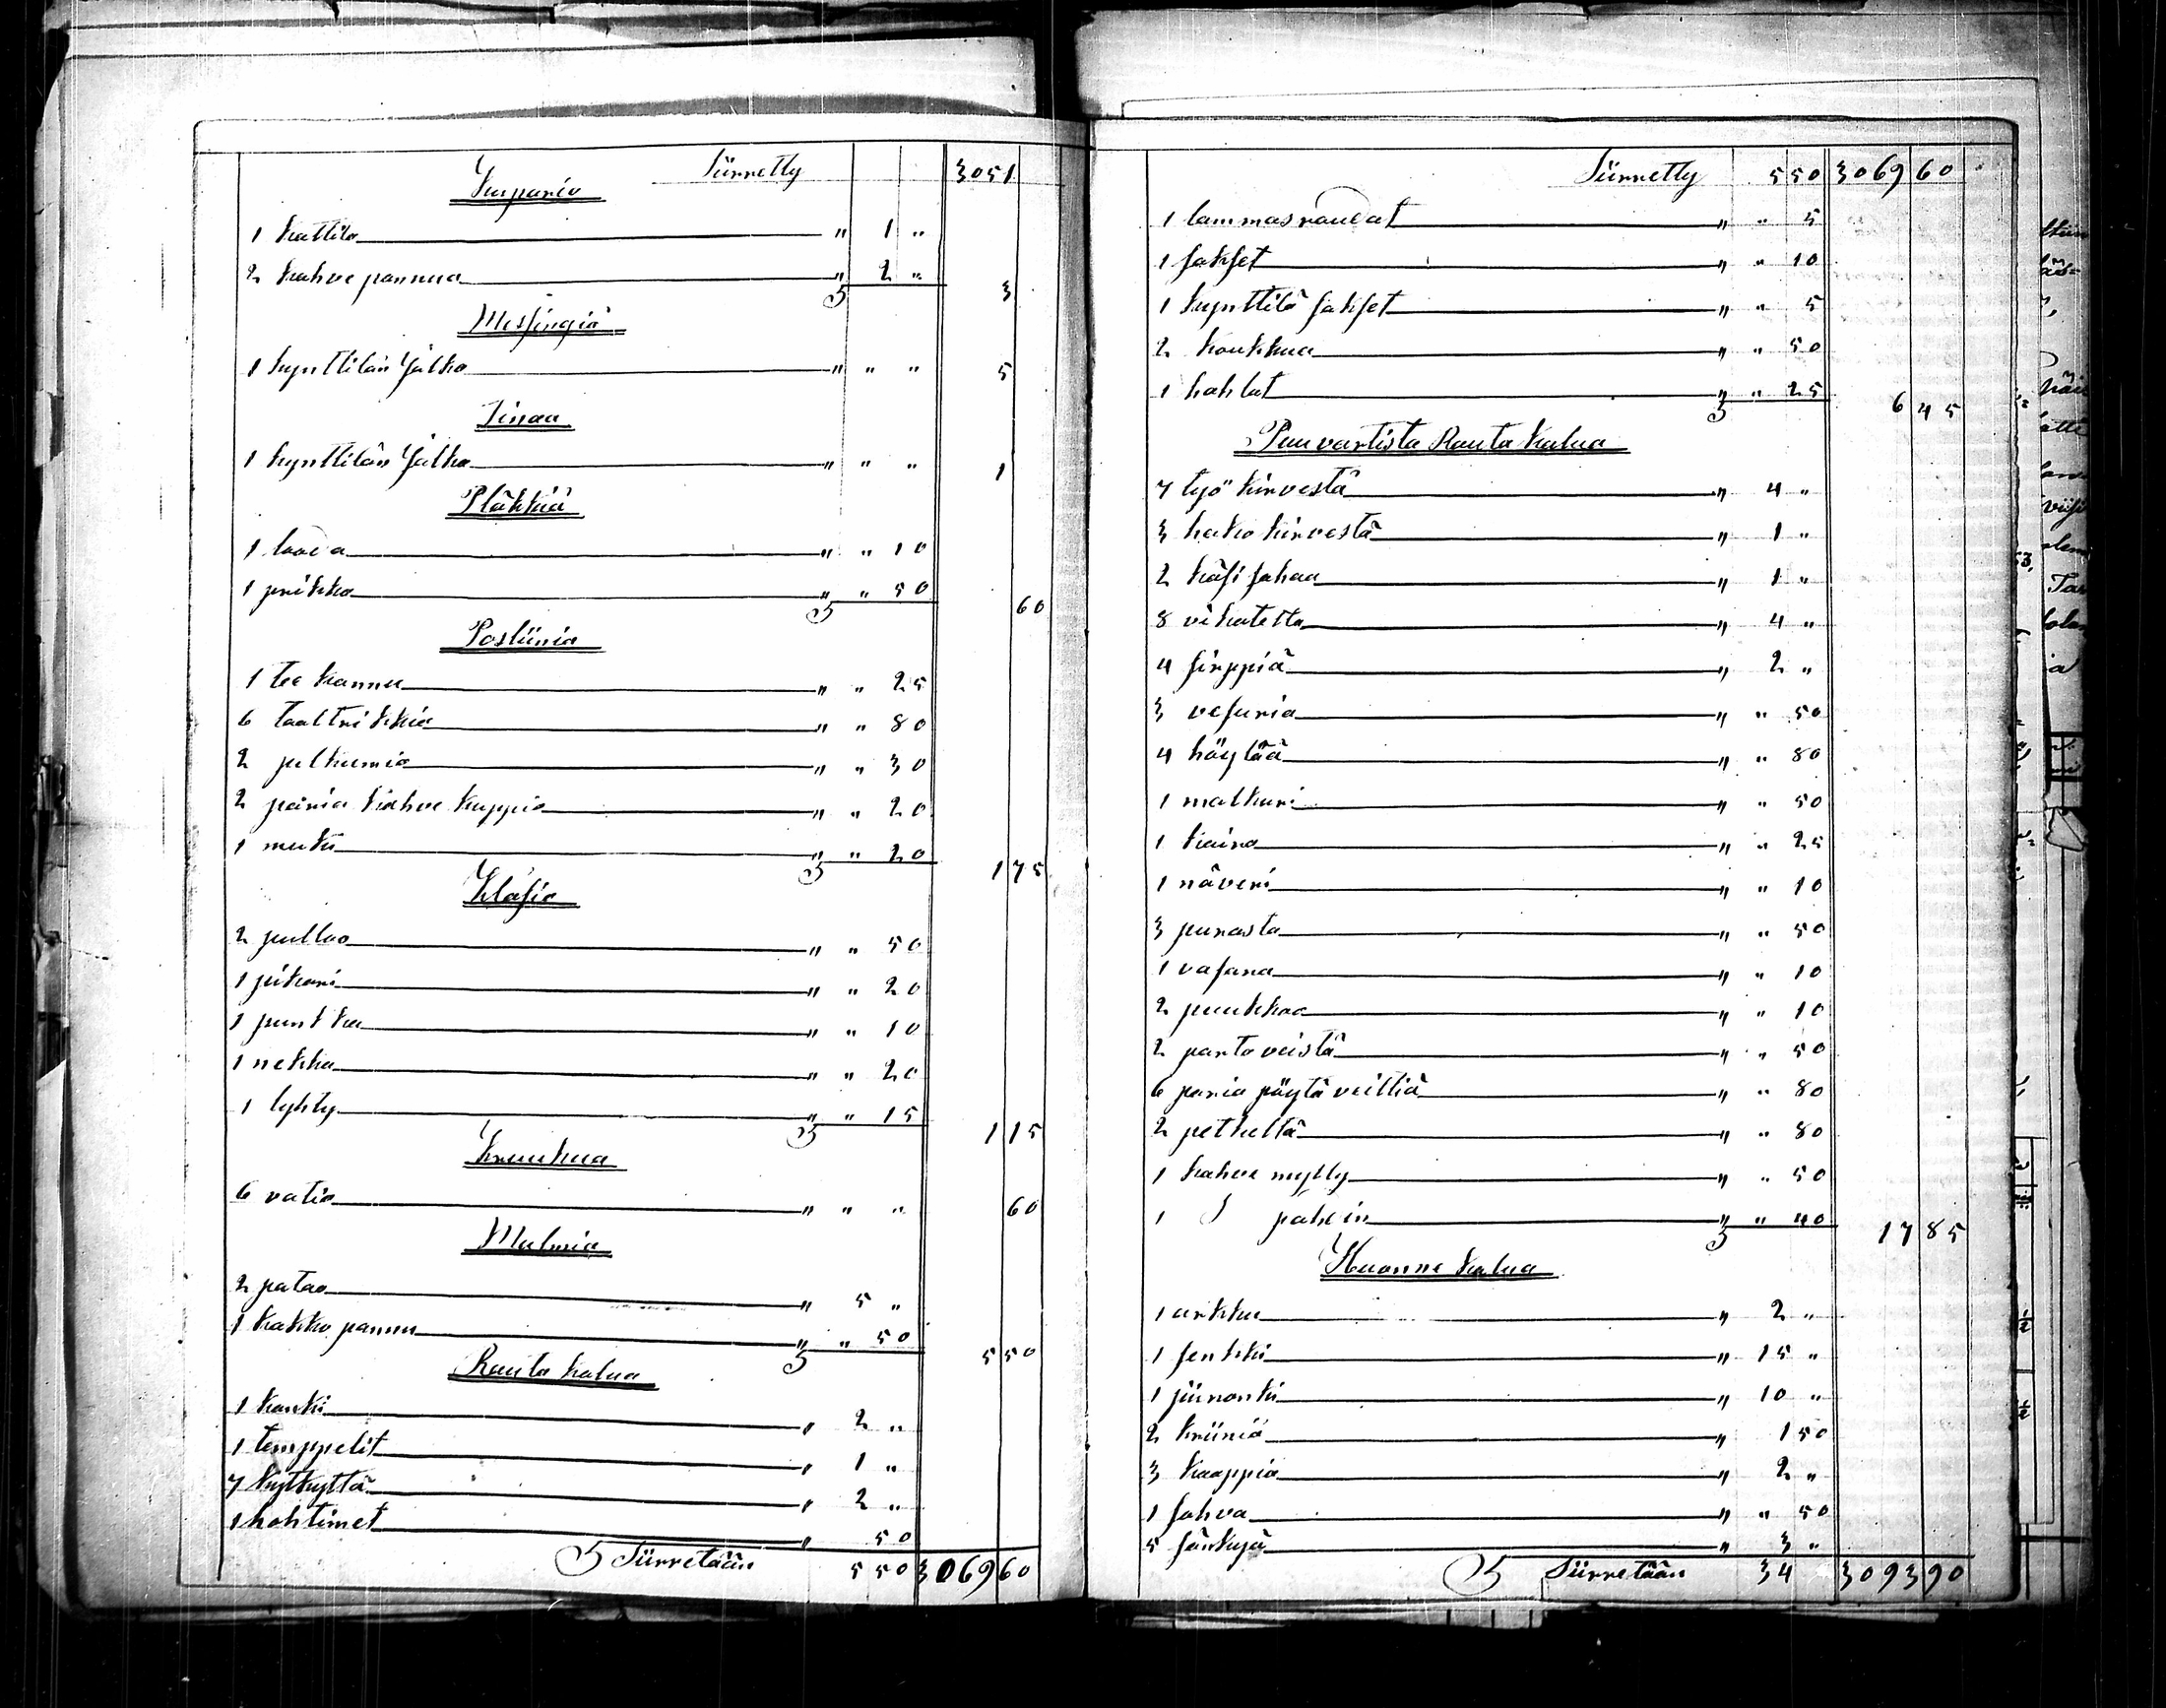 Siirretty 3051
Kuparia
1 kattila " 1 "
2 kahve pannua " 2 " 3
Messingiä
1 kynttilän jalka " " " 5
Tinaa
1 kynttilän jalka " " " 1
Pläkkiä
1 laada " " 10
1 prikka " " 50 60
Posliinia
1 tee kannu " " 25
6 taaltrikkia " " 80
2 pelkumia " " 30
2 paria kahve kuppia " " 20
1 muki " " 20 1 75
Klasia
2 pulloa " " 50
1 pikari " " 20
1 punkka " " 10
1 nekka " " 20
1 lyhty " " 15 1 15
Kruukua
6 vatia " " " 60
Malmia
2 pataa " 5 "
1 kakko pannu " " 50 5 50
Rauta kalua
1 kanki " 2 "
1 temppelit " 1 "
7 kytkyttä " 2 "
1 hohtimet " 50
Siirretään 5 50 3069 60
Siirretty 5 50 3069 60
1 lammasraudat " " 5
1 sakset " " 10
1 kynttilä sakset " " 5
2 koukkua " " 50
1 hahlat " " 25 6 45
Puuvartista Rauta kalua
7 työ kirvestä " 4 "
3 hako kirvestä " 1 "
2 käsi sahaa " 1 "
8 vikatetta " 4 "
4 sirppiä " 2 "
3 vesuria " " 50
4 höylää " " 80
1 matkuri " " 50
1 kaira " " 25
1 näveri " " 10
3 purasta " " 50
1 vasara " " 10
2 puukkoa " " 10
2 parta veistä " " 50
6 paria pöytä veittiä " " 80
2 petkeltä " " 80
1 kahve mylly " " 50
1 " pahvin " " 40 17 85
Huonne kalua
1 arkku " 2 "
1 senkki " 15 "
1 piironki " 10 "
2 kriiniä " 1 50
3 kaappia " 2 "
1 sahva " " 50
5 sänkyjä " 3 "
Siirretään 34 3093 90